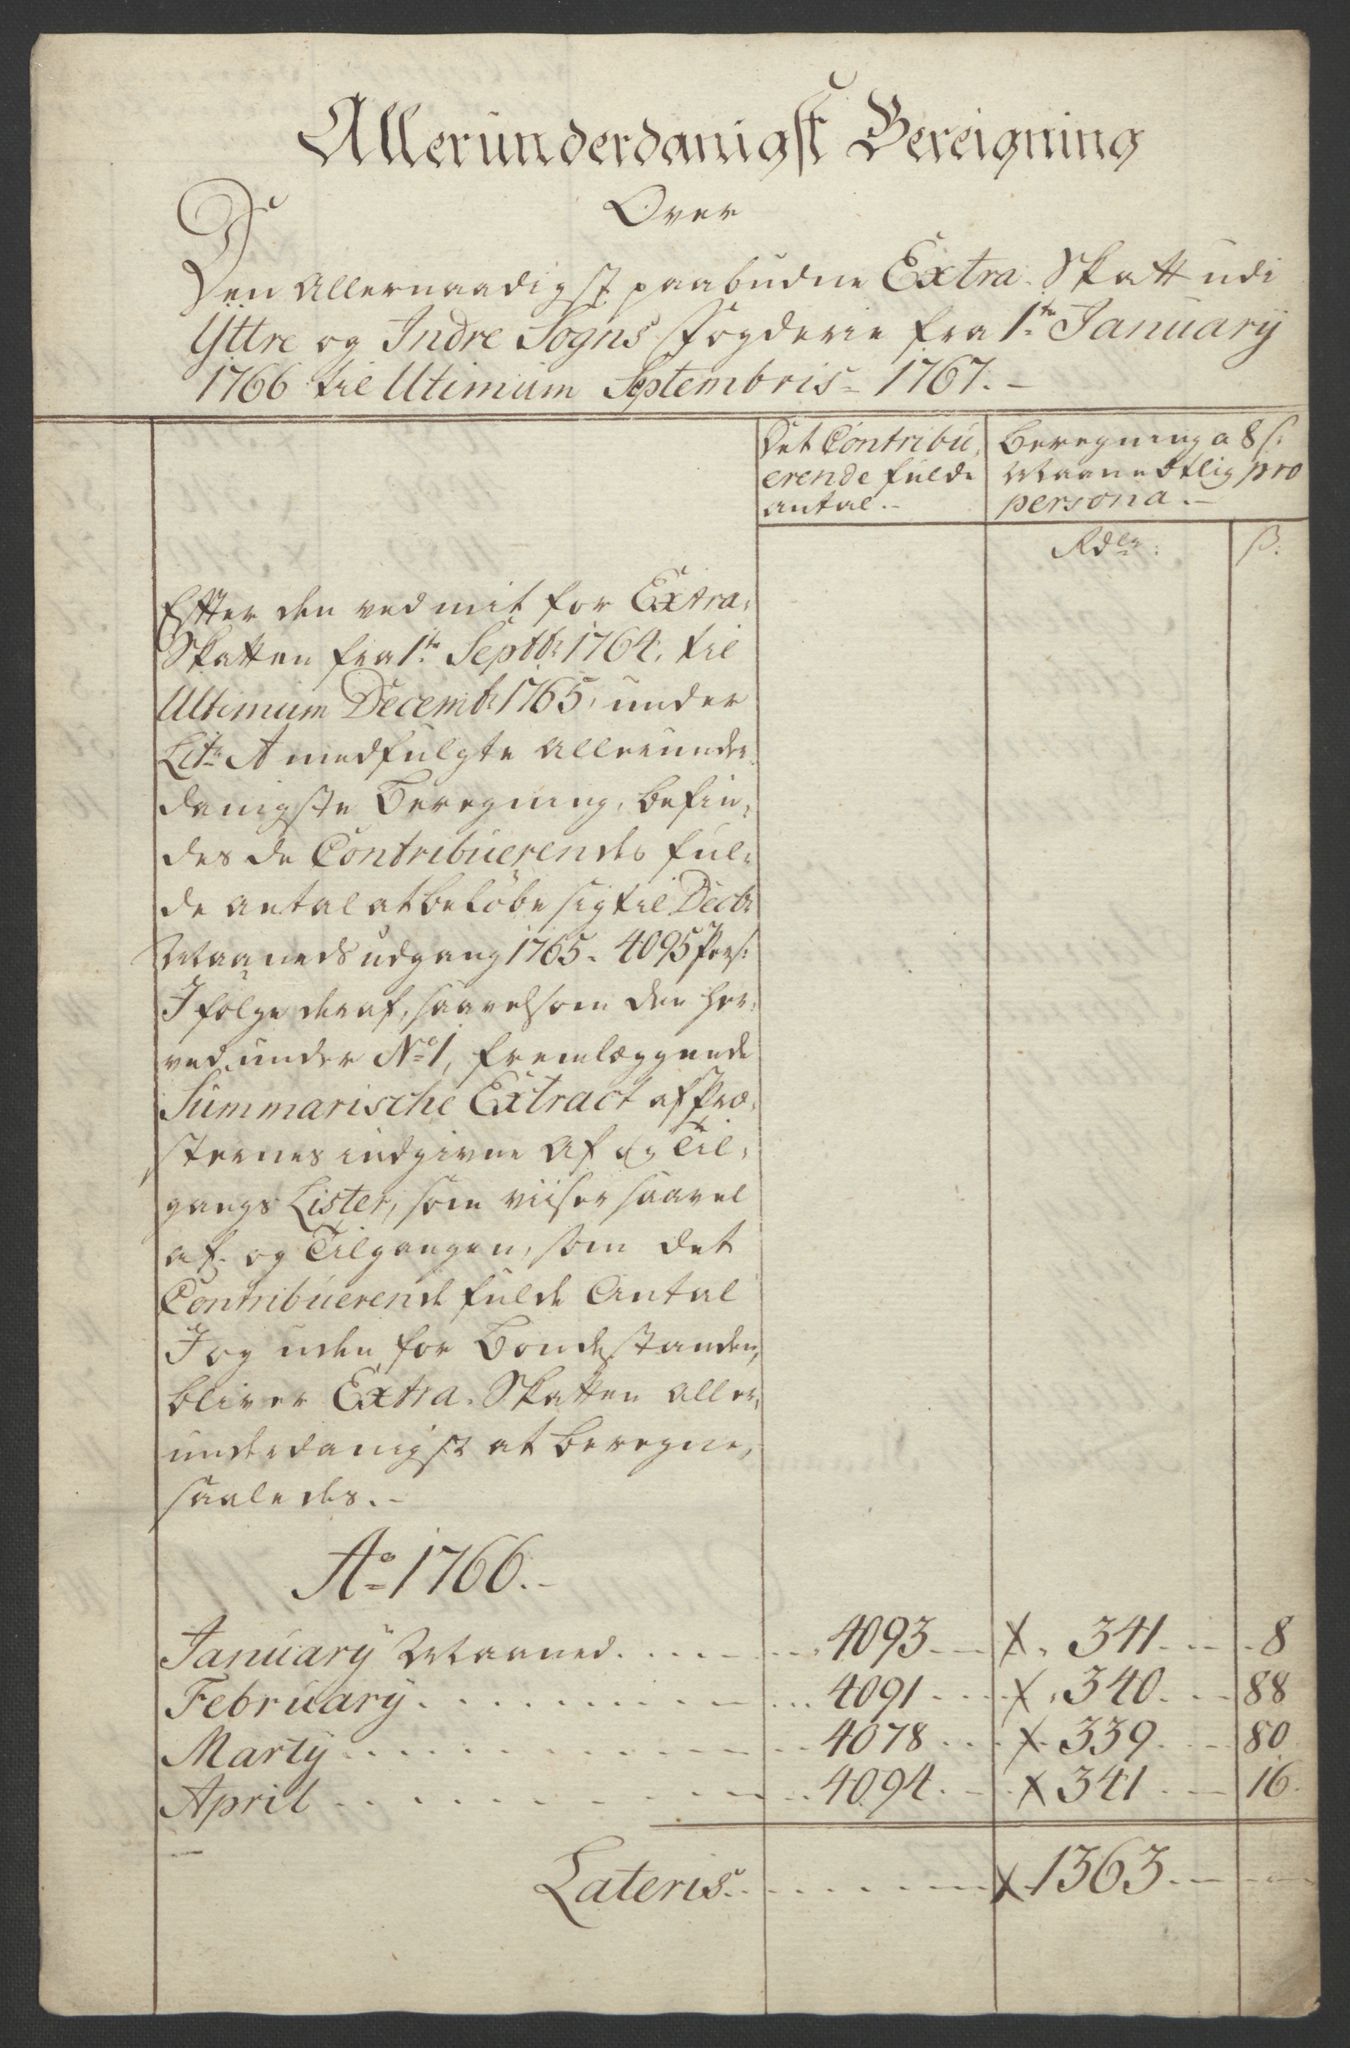 Allerunderdanigst Bereigning
Over
Den Allernaadigst paabudne Extra Skatt udi
Yttre og Indre Sogns Fogderie fra 1te January
1766 til Utimum Septembris 1767.-
Det Contribu,
erende fulde
antal.-
Beregning a 8 s:
Maanedtlig pro
persona.-
Rdlr:
ß.
Effter den ved mit for Extra,
Skatten fra 1te Septbr: 1764, til
Ultimum Decembr 1765, under
Litr A medfulgte Allerunder,
danigste Beregning, befin,
des de Contribuerendes ful,
de antal at beløbe sig til Decbr
Maaneds udgang 1765 - 4095 Pers:
I følge deraf, saavelsom den her,
ved under No 1, fremlæggende
Summarische Extract af Præ,
sternes indgivne Af og Til,
gangs Lister, som viiser saavel
af- og Tilgangen, som det
Contribuerende fulde Antal
I og uden for Bondestanden,
bliver Extra-Skatten Aller,
underdanigst at beregne,
saaledes.-
Ao 1766.-
January Maaned . . . 4093 . . . 341 . . . 8
February . . . 4091 . . . 340 . . . 88
Marty . . . 4078 . . . 339 . . . 80
April . . . 4094 . . . 341 . . . 16
Lateris . . . 1363 . . .